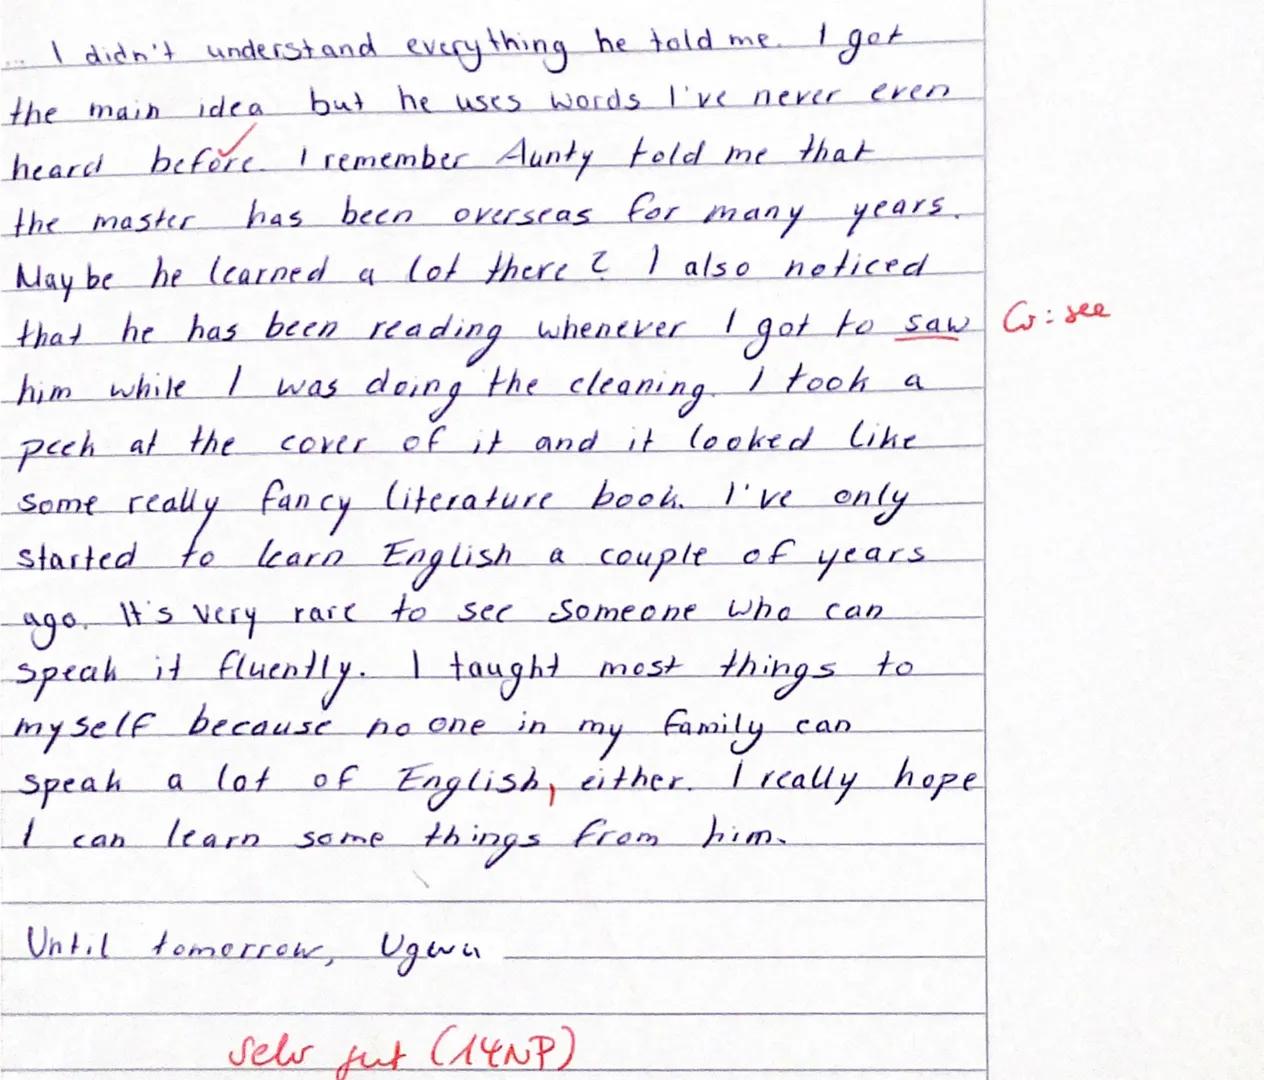 ... I didn't understand everything he told me. I got
the main idea but he uses words I've never even
heard before. I remember Aunty told me that
the master has been overseas for many years.
Maybe he learned a lot there? I also noticed
that he has been reading whenever I got to saw Gr: see
him while I was doing the cleaning. I took a
peek at the cover of it and it looked like
some really fancy literature book. I've only
started to learn English a couple of years
ago. It's very rare to see someone who can
speak it fluently. I taught most things to
myself because no one in my family can
speak a lot of English, either. I really hope
I can learn some things from him.
Until tomorrow, Ugwu
sehr gut (14NP)